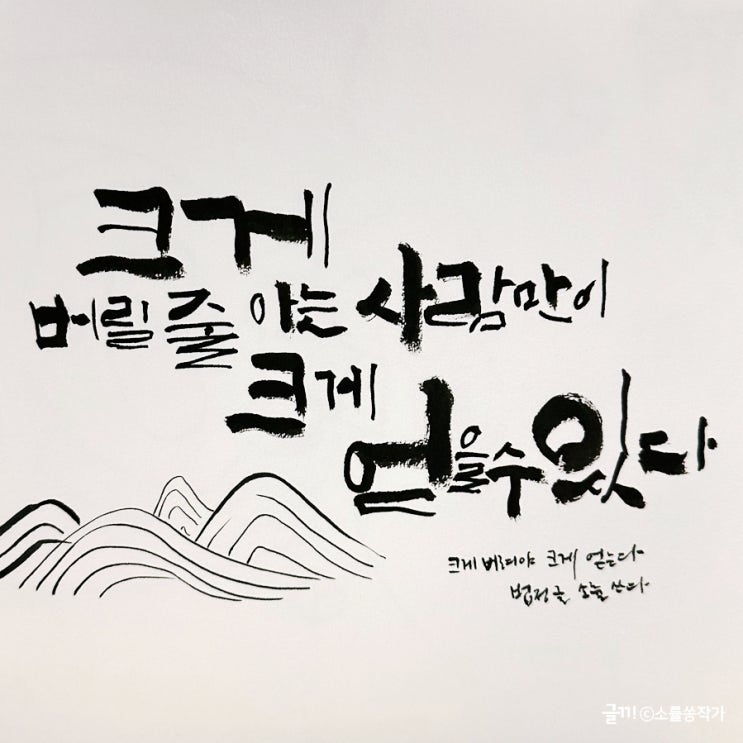 크게
버릴 줄 아는 사람만이
크게
얻을 수 있다
크게 버려야 크게 얻는다
법정 글 소늘 쓰다
글끼! ©소를쏭작가